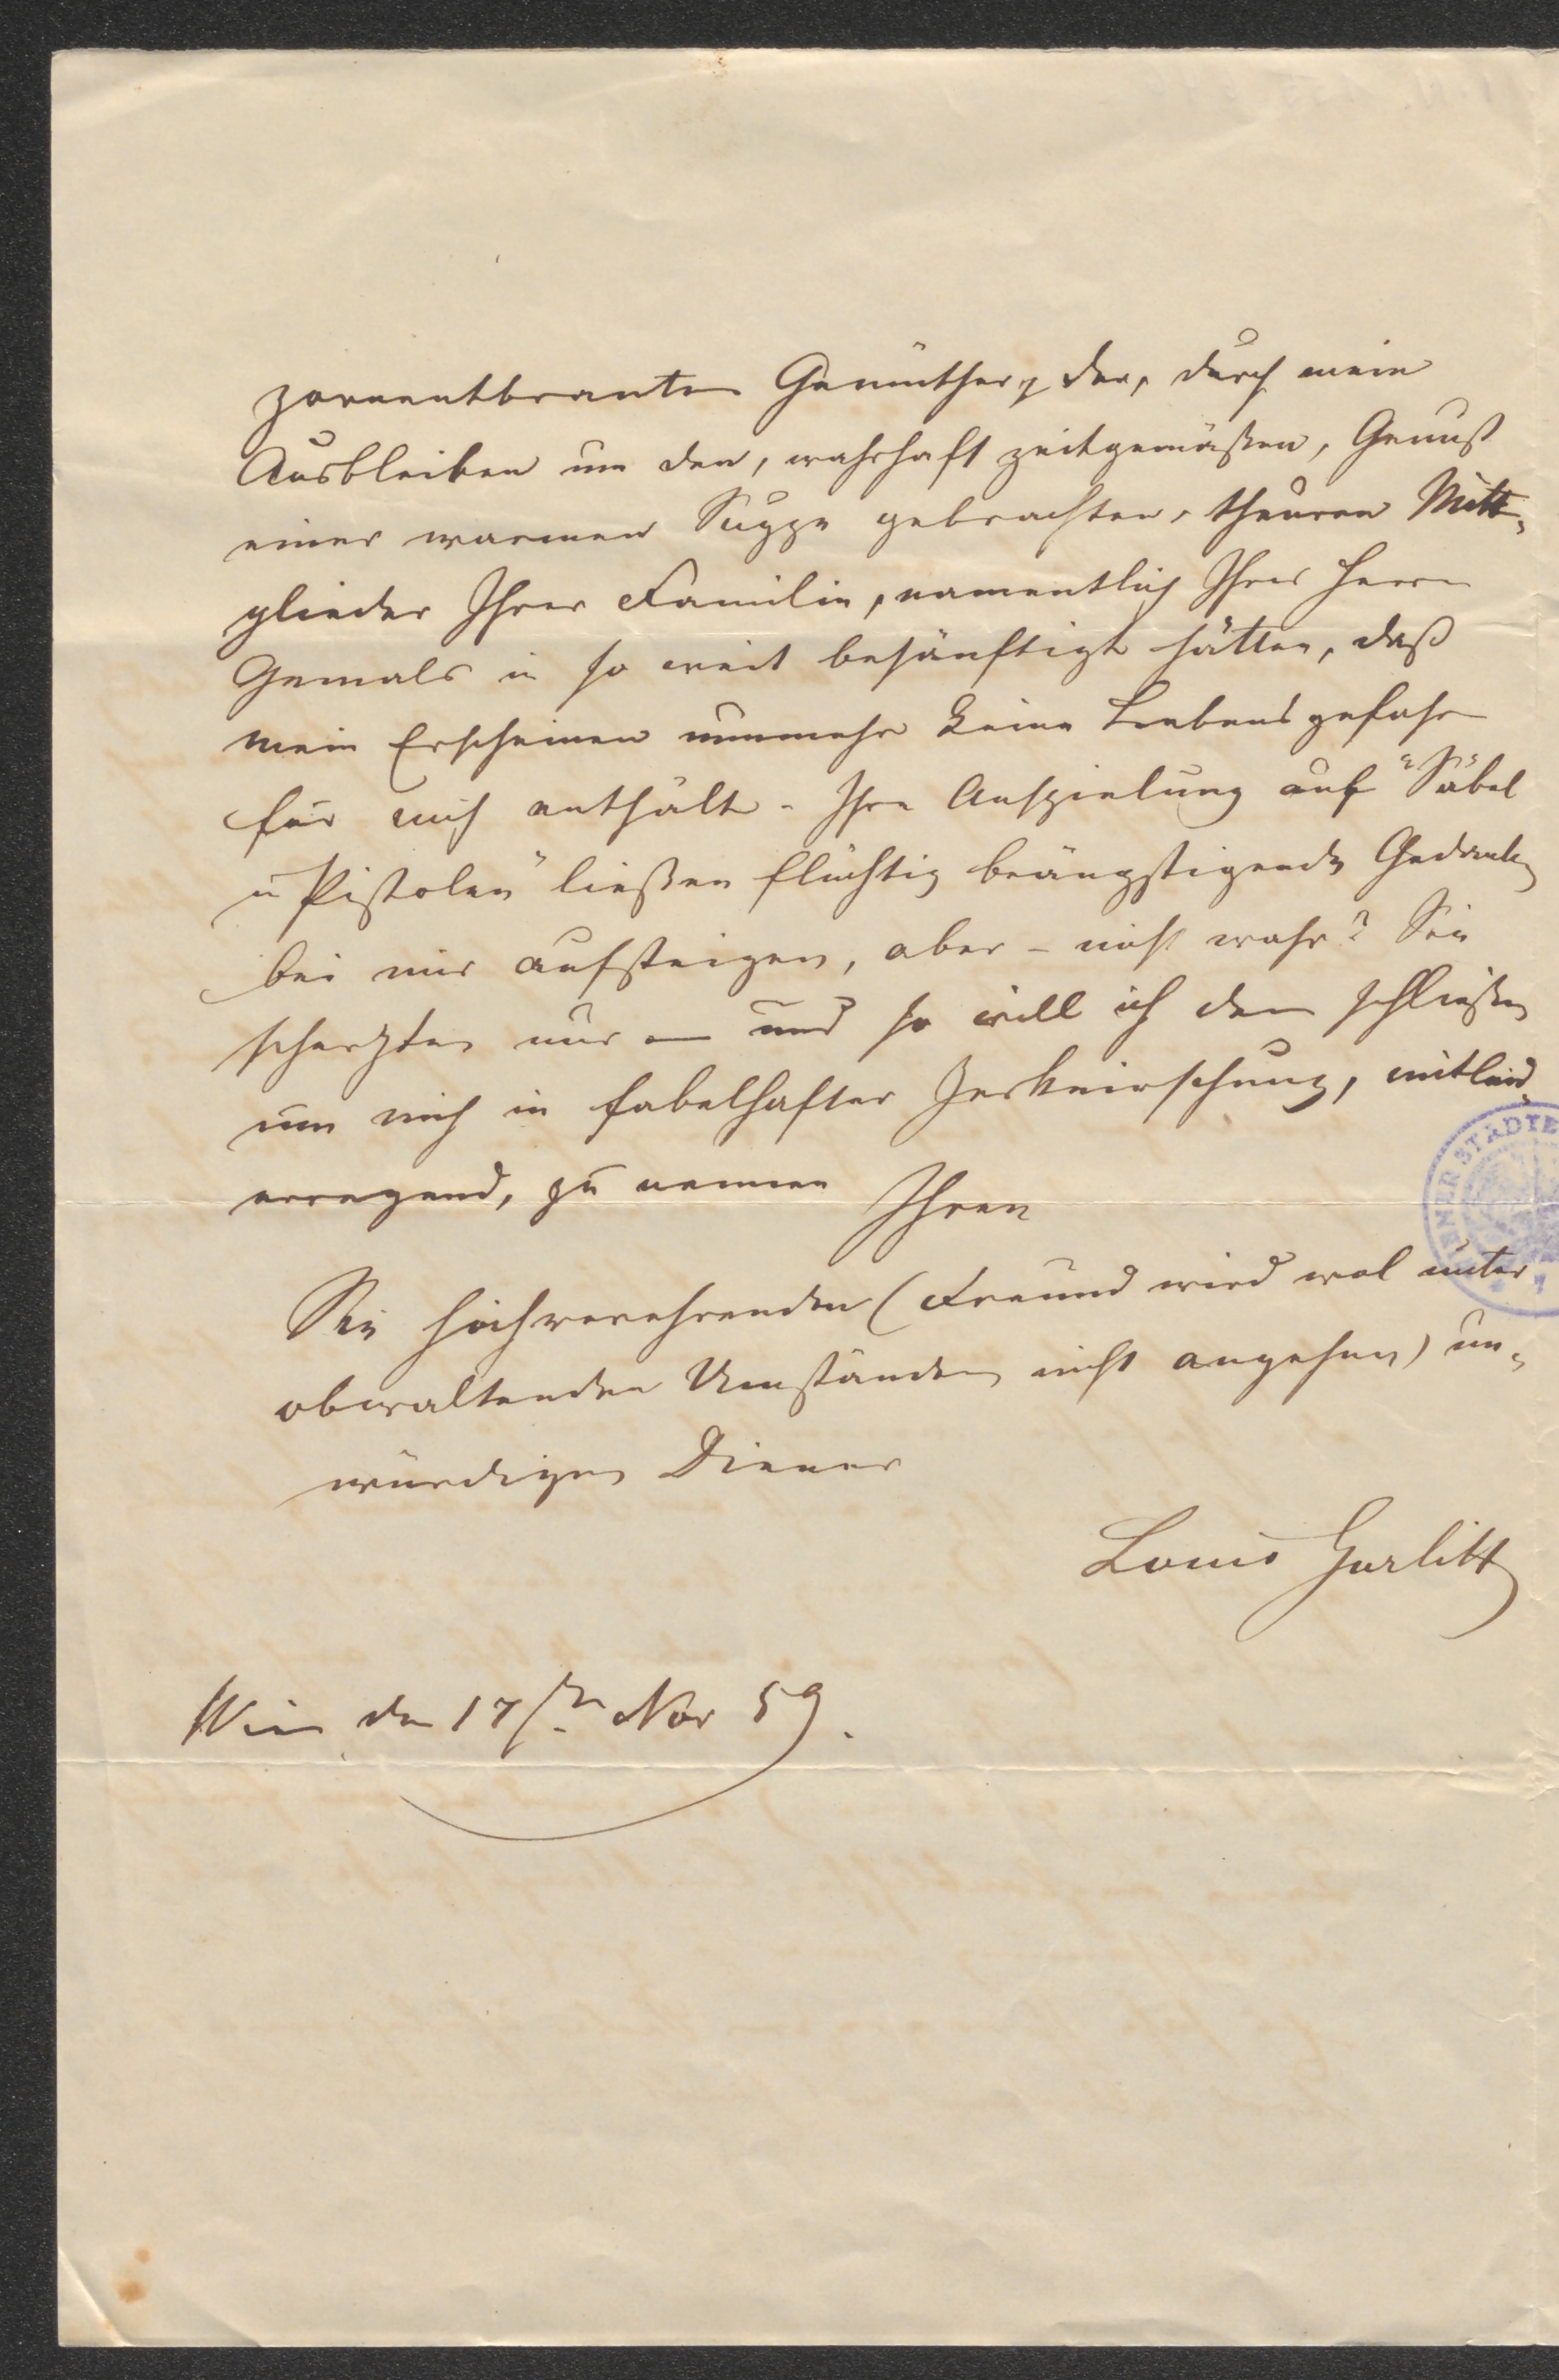 zornentbranten Gemüther, der, durch mein
Ausbleiben um den, wahrhaft zeitgemäßen, Genuß
einer warmen Suppe gebrachten, theuren Mitt-
glieder Ihrer Familie, namentlich Ihres Herrn
Gemals in so weit besänftigt hätten, daß
mein Erscheinen nunmehr keine Lebensgefahr
für mich enthält. Ihre Anspielung auf "Säbel
u Pistolen" ließen flüchtig beängstigende Gedanken
bei mir aufsteigen, aber - nicht wahr? Sie
scherzten nur — und so will ich den schließen
um mich in fabelhafter Zerknirschung, mitleid
erregend, zu nennen Ihren
Sie hochverehrenden (Freund wird wol unter
obwaltenden Umständen nicht angehen) un-
würdigen Diener
Louis Gurlitt
Wien den 17ten Nov 59.
WIENER STÄDTE